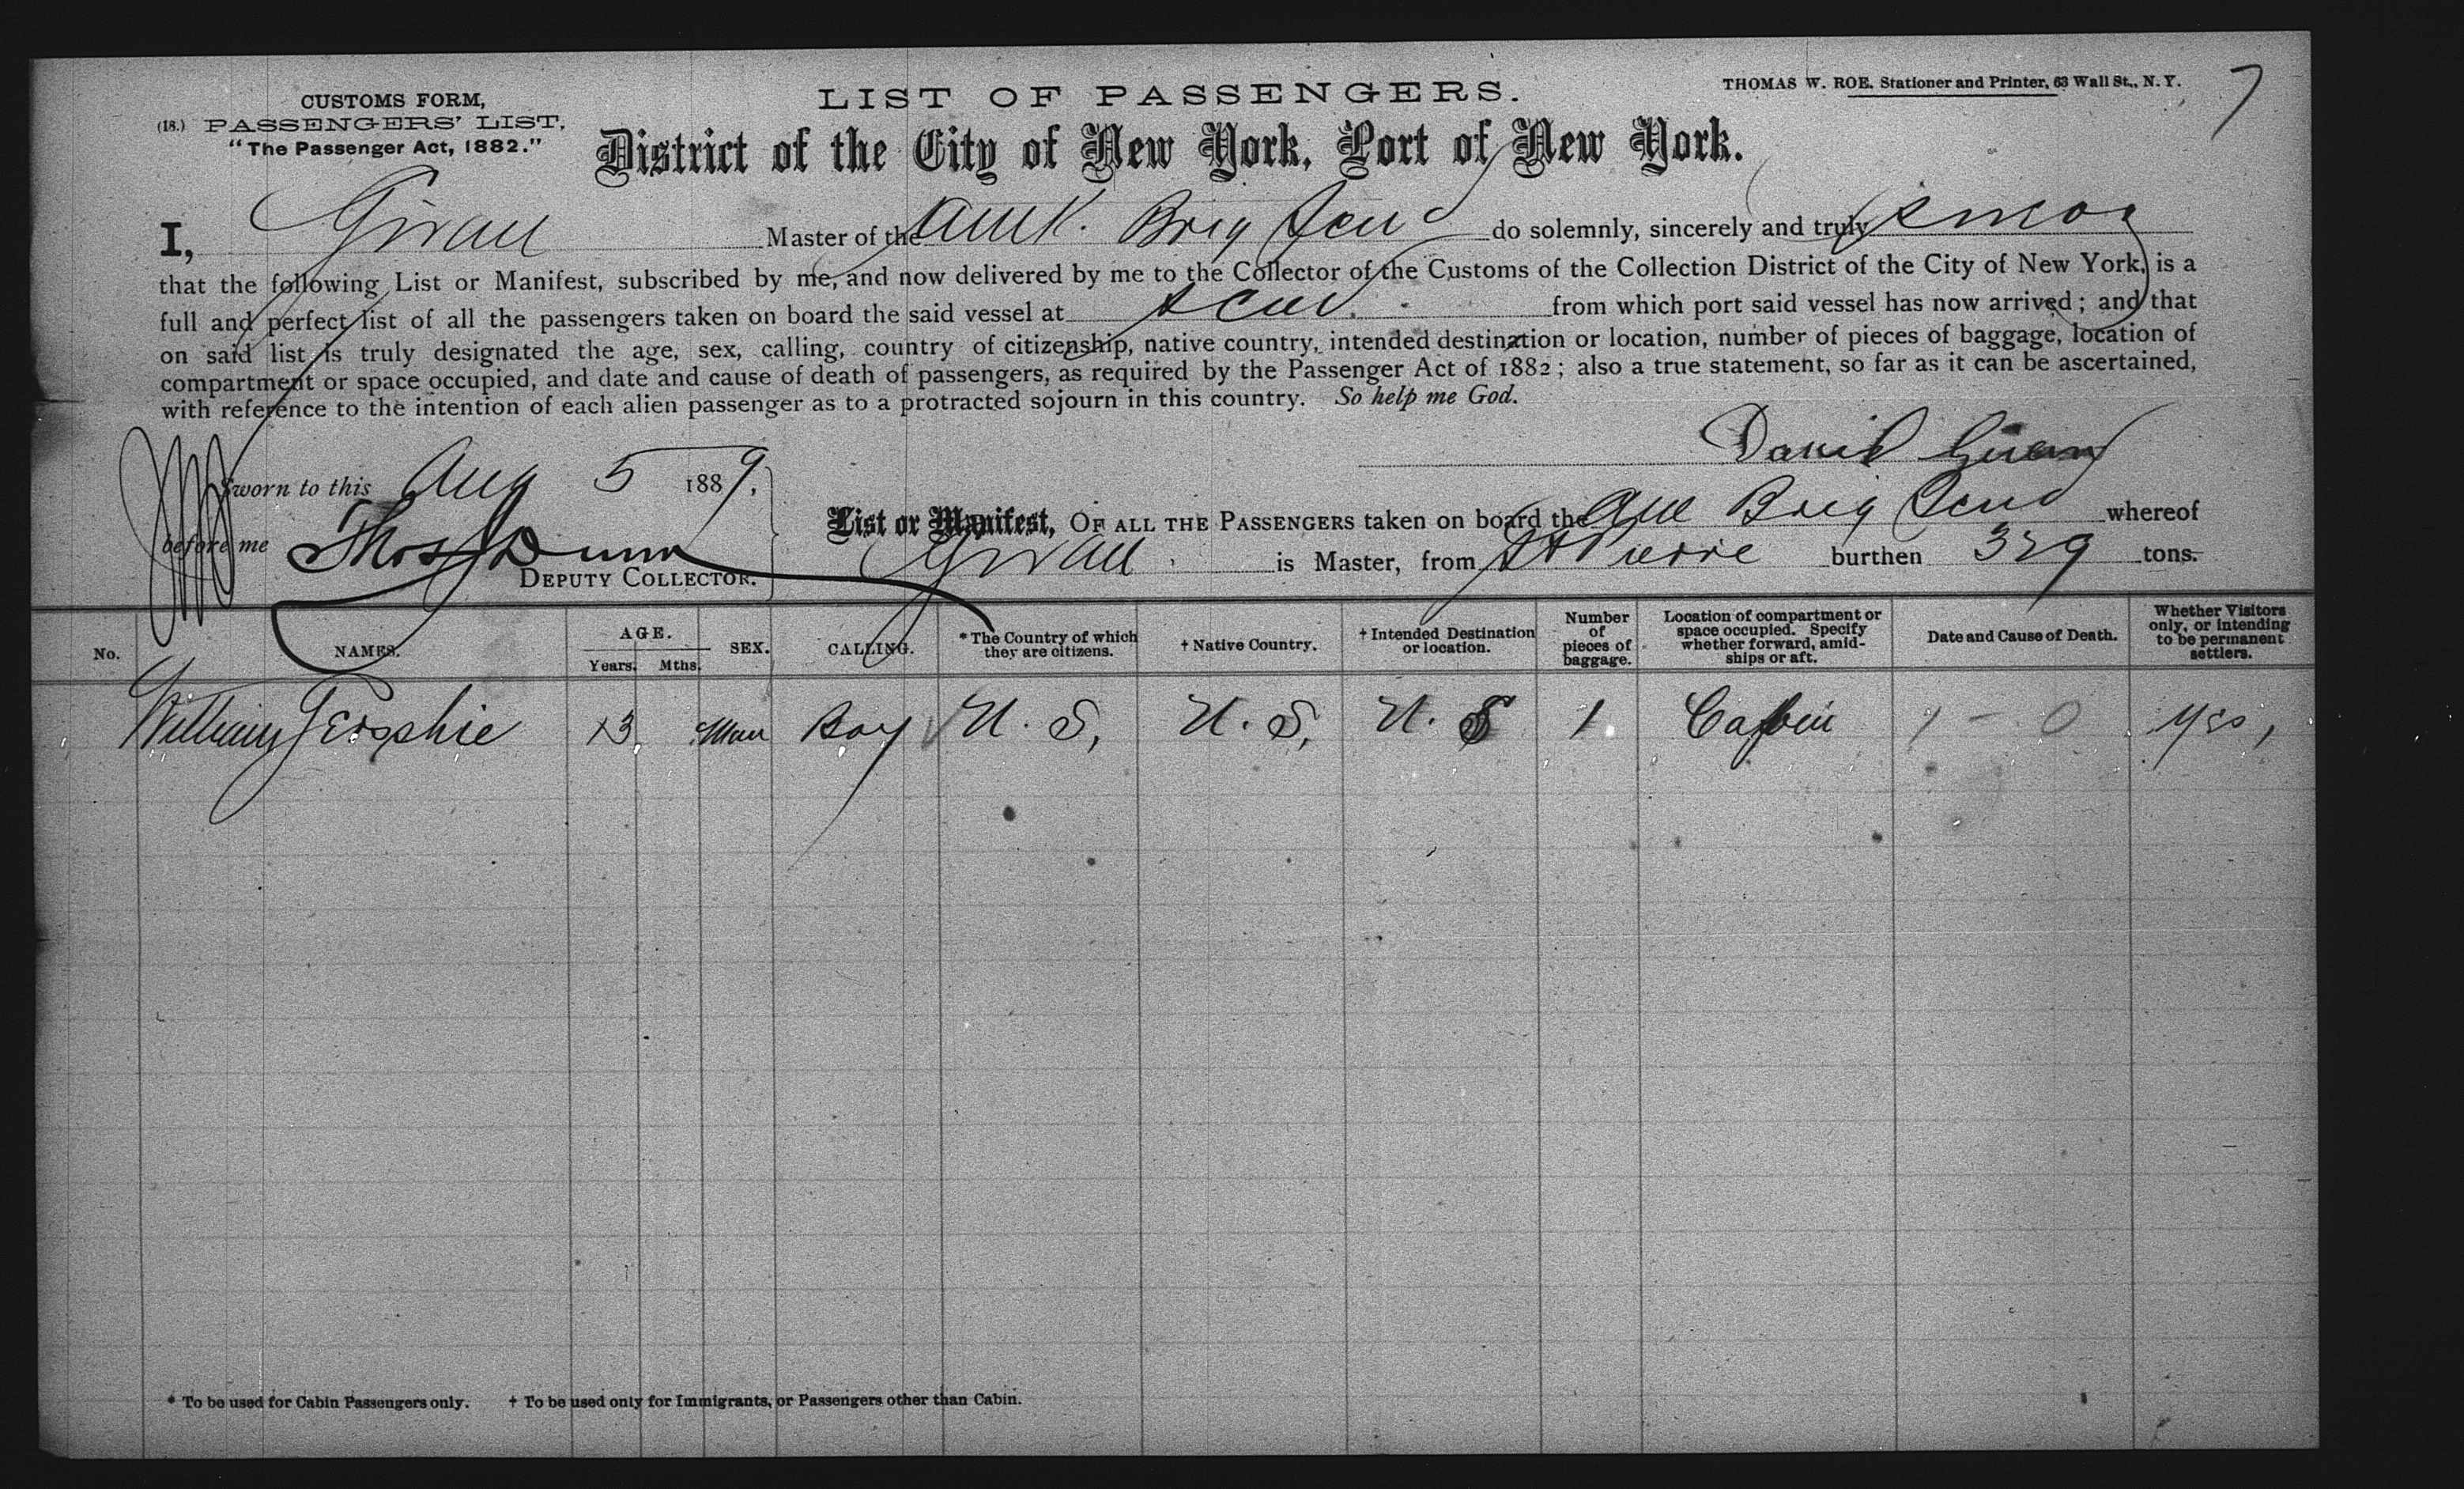 CUSTOMS FORM,
(18.) PASSENGERS' LIST,
"The Passenger Act, 1882."
LIST OF PASSENGERS.
THOMAS W. ROE, Stationer and Printer, 63 Wall St., N. Y.
7
District of the City of New York, Port of New York.
I, Givan Master of the Brig do solemnly, sincerely and truly swear
that the following List or Manifest, subscribed by me, and now delivered by me to the Collector of the Customs of the Collection District of the City of New York, is a
full and perfect list of all the passengers taken on board the said vessel at from which port said vessel has now arrived; and that
on said list is truly designated the age, sex, calling, country of citizenship, native country, intended destination or location, number of pieces of baggage, location of
compartment or space occupied, and date and cause of death of passengers, as required by the Passenger Act of 1882; also a true statement, so far as it can be ascertained,
with reference to the intention of each alien passenger as to a protracted sojourn in this country. So help me God.
David Givan
Sworn to this Aug 5 1889.
before me Thos J Dunn
DEPUTY COLLECTOR.
List or Manifest, OF ALL THE PASSENGERS taken on board the Brig whereof
Givan is Master, from St Pierre burthen 329 tons.
No. NAMES. AGE. Years. Mths. SEX. CALLING. * The Country of which they are citizens. † Native Country. † Intended Destination or location. Number of pieces of baggage. Location of compartment or space occupied. Specify whether forward, amid-ships or aft. Date and Cause of Death. Whether Visitors only, or intending to be permanent settlers.
William 13 Man Boy U. S, U. S, U. S 1 Cabin 1 - 0 yes,
* To be used for Cabin Passengers only. † To be used only for Immigrants, or Passengers other than Cabin.